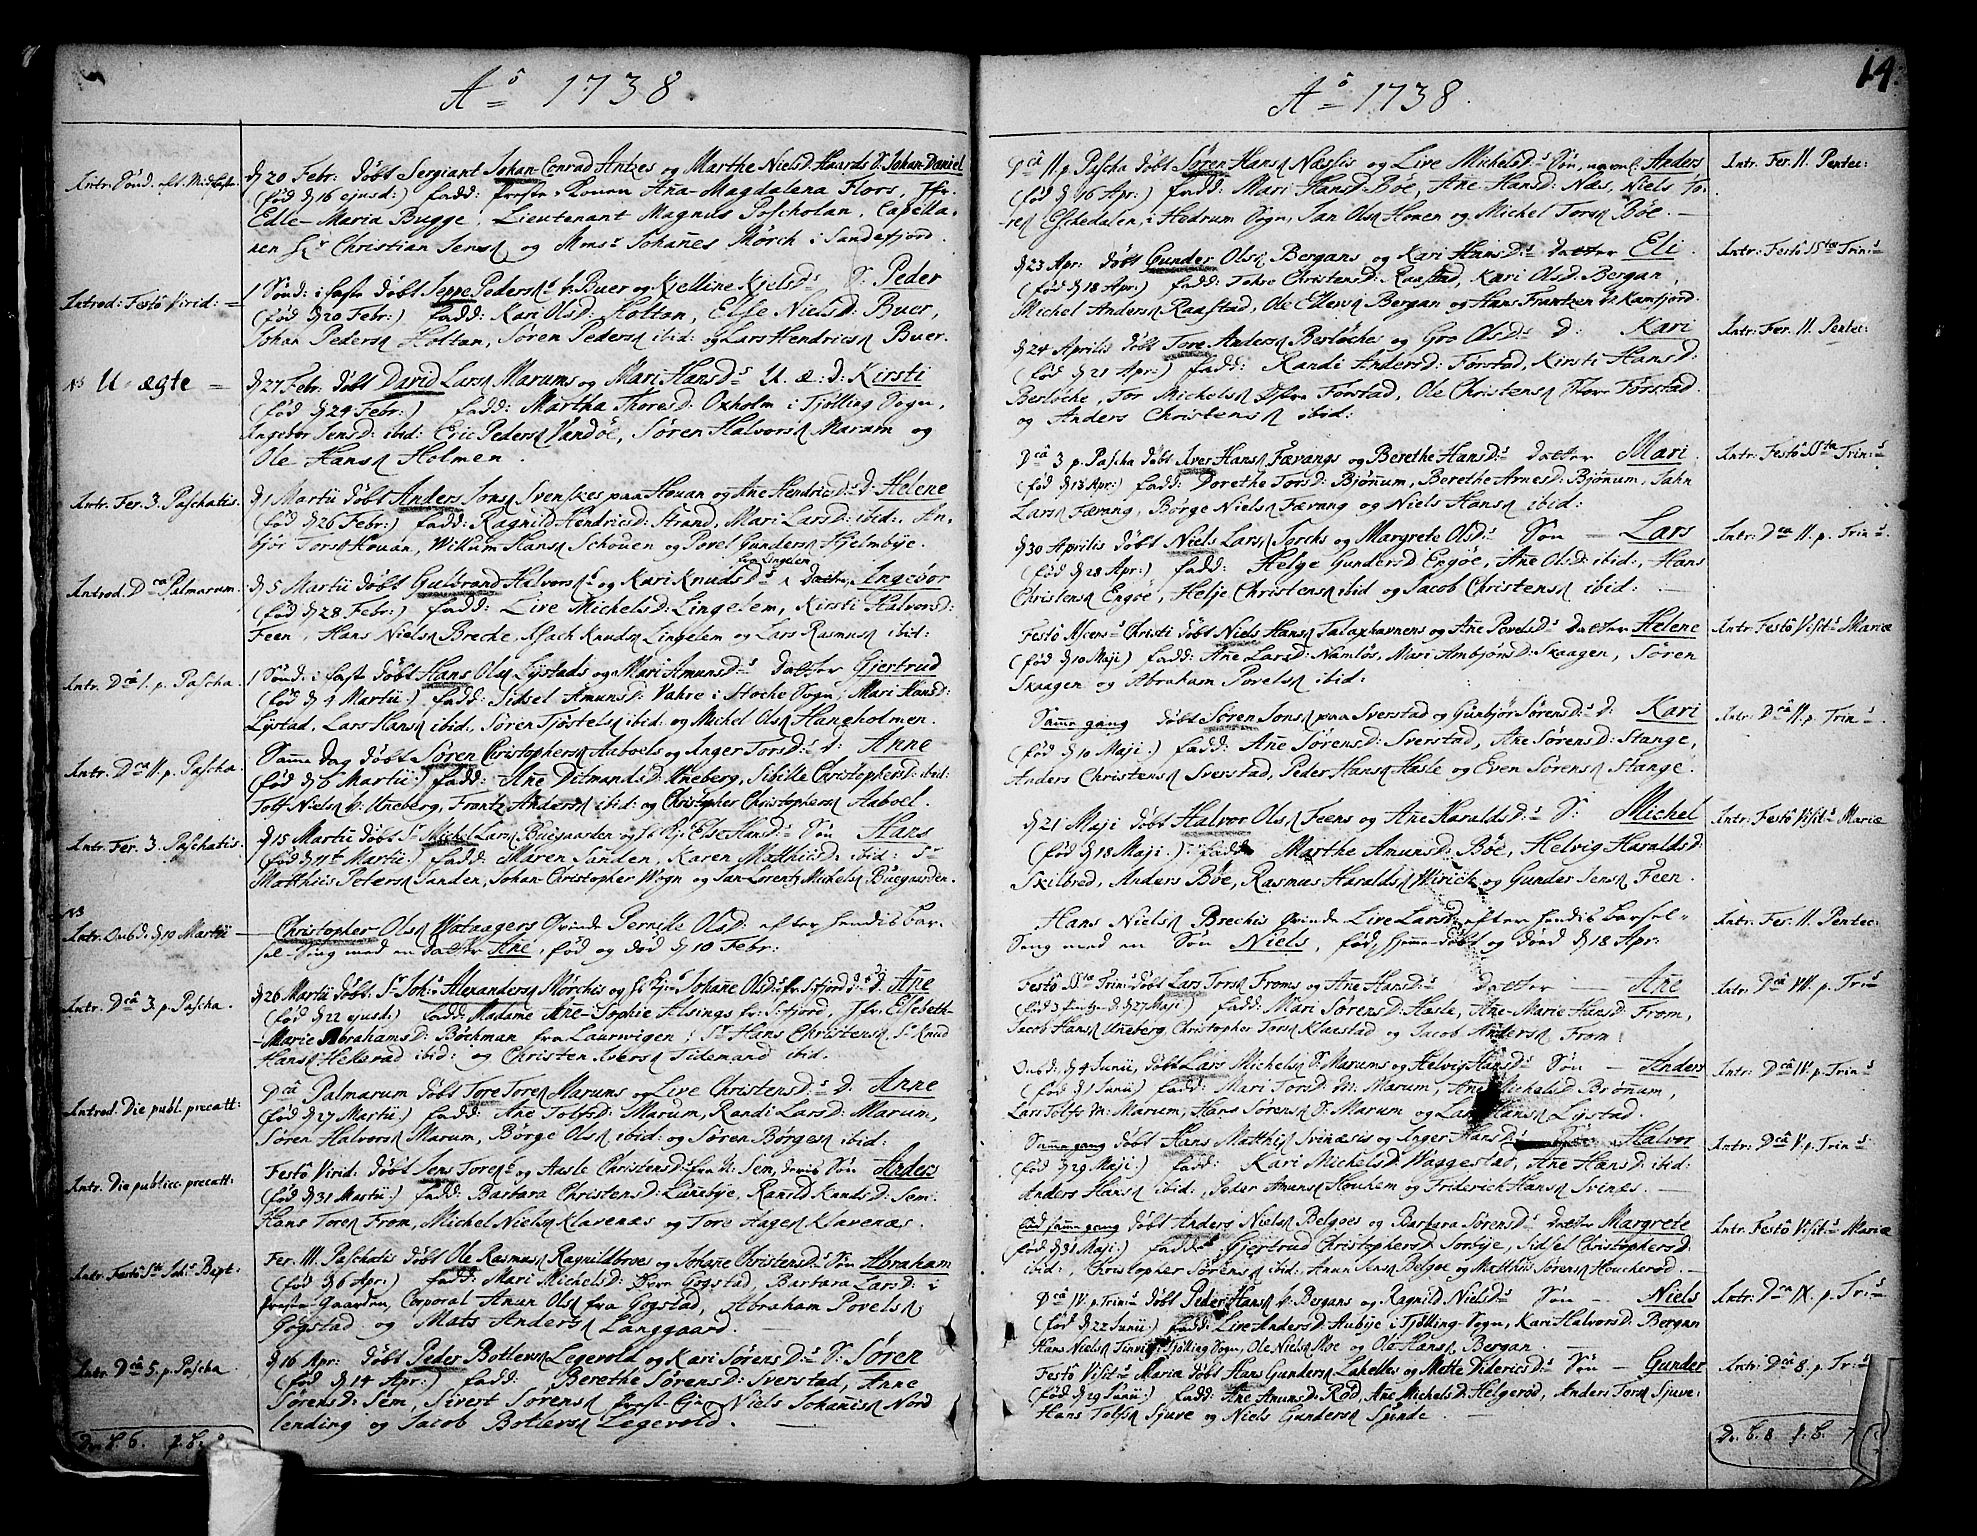 Aô 1738
Intr: Sönd:
d 20 Febr: döbt Sergiant Johan Conrad Antzes og Marthe Nielsd: Haards S: Johan Daniel
(fød d 16 ejusd:) fadd: Konen Ana Magdalena Flors, Jfr.
Edle-Maria Bugge, Lieutenant Magnus Poscholan, Capella-
nen Hr Christian Jensn og Monsr Johañes Mörch i Sandefjord.
Introd: Festô Virid:
1 Sönd: i faste döbt Jeppe Pedersn Buer og Kjelline Kjelsd: S: Peder
(fød d 20 Febr:) fadd: Kari Olsd: Holtan, Else Nielsd: Buer,
Johan Pedersn Holtan, Sören Pedersn ibid: og Lars Hendricsn Buer.
NB U-ægte
d 27 Febr: döbt David Larsn Marums og Mari Hansds U. æ: d: Kirsti
(fød d 24 Febr:) fadd: Martha Thoresd: Oxholm i Tjölling Sogn,
Ingebor Jensd: ibid: Eric Pedersn Vandöe, Sören Halvorsn Marum og
Ole Hansn Holmen.
Intr. Fer. 3. Paschatis:
d 1 Martii döbt Anders Jonsn Svenskes paa Houan og Ane Hendricsds d: Helene
(fød d 26 Febr:) fadd: Ragnild Hendricsd: Strand, Mari Larsd: ibid:, An-
björ Torsn Houan, Willum Hansn Schouen og Povel Gundersn Hjelmbÿe.
fra Lingelem
Introd. Dca Palmarum.
d 5 Martii döbt Gulbrand Halvorsns og Kari Knudsds Datter Ingebor
(fød d 28 Febr:) fadd: Live Michelsd: Lingelem, Kirsti Halvorsd:
Feen, Hans Nielsn Breche, Isach Knudsn Lingelem og Lars Rasmusn ibid:
Intr. Dca 1. p. Pascha.
1 Sönd: i fast döbt Hans Olsn Lÿstads og Mari Amunsds datter Gjertrud
(fød d 4 Martii) fadd: Sidsel Amunsd: Vahre i Stoche Sogn, Mari Hansd:
Lÿstad, Lars Hansn ibid:, Sören Tjöstelsn ibid: og Michel Olsn Haneholmen.
Intr. Dca II. p. Pascha.
Samme dag döbt Sören Christophersn Aaboels og Inger Torsds d: Anne
(fød d 6 Martii) fadd: Ane Ditmandsd: Uneberg, Sibille Christophersd: ibid:
Tolf Nielsn Uneberg, Frantz Andersn ibid: og Christopher Christophersn Aaboel.
Intr. Fer. 3. Paschatis.
d 15 Martii döbt Sr Michel Larsn Buegaarden og Else Hansds Sön Hans
(fød d 11t Martii) fadd: Maren Sanden, Karen Matthiisd: ibid: Sr
Matthiis Petersn Sanden, Johan Christopher Wogn og Jan Lorentz Michelsn Buegaarden.
NB
Intr. Onsd: d 10 Martii
Christopher Olsn Wataagers Qvinde Pernille Olsd: efter hendis Bar-
sel-Seng med en datter Ane, fød og död d 10 Febr:
Intr. Dca 3. p. Pascha.
d 26 Martii döbt Sr Johs Alexandersn Mörchis og Johañe Olsds fr: Sfjord d: Añe
(fød d 22 ejusd:) fadd: Madame Ane-Sophie Elsings fr: Sfjord, Jfr. Elsebeth-
Marie Abrahamsd: Böchman fra Laurwigen, Sr Hans Christensn, Sr Knud
Hansn Hekerad ibid: og Christen Iversn Tidemand ibid.
Introd. Die publ. precatt:
Dca Palmarum döbt Tore Toresn Marums og Live Christensds d: Anne
(fød d 27 Martii) fadd: Ane Tolfsd: Marum, Randi Larsd: Marum,
Sören Halvorsn Marum, Börge Olsn ibid: og Sören Börgesn ibid:
Intr. Die public. precatt:
Festô Virid: döbt Jens Toresns og Aasle Christensds fra Sem, deris Sön Anders
(fød d 31 Martii:) fadd: Barbara Christensd: Lunebÿe, Ranild Knudsd: Sem:
Hans Toresn From, Michel Nielsn Klavenæs og Tore Hagesn Klavenæs.
Intr. Festô Sti Johs Bapt:
Fer. III. Paschatis döbt Ole Rasmusn Ragnildroes og Johañe Christensds Sön Abraham
(fød d 6 Apr:) fadd: Mari Michelsd: Gogstad, Barbara Larsd: i
Præste-Gaarden, Corporal Anun Olsn fra Gogstad, Abraham Povelsn
Gogstad og Mats Andersn Langgaard.
Intr. Dca 5. p. Pascha
d 16 Apr: döbt Peder Botlersn Legevold og Kari Sörensds S: Sören
(fød d 14 Apr:) fadd: Berethe Sörensd: Sverstad, Anne
Sörensd: Sem, Sivert Sörensn Niels Johañisn Nord
lending og Jacob Botlersn Legevold.
Dr. b. 6.
14.
Aô 1738.
Dca II. p. Pascha döbt Sören Hansn Næssis og Live Michelsds Sön, navnl. Anders
(fød d 16 Apr:) fadd: Mari Hansd: Böe, Ane Hansd: Næs, Niels To-
resn Estedalen, i Hedrum Sogn, Jan Olsn Honen og Michel Torsn Böe.
Intr. Fer. II. Pentec:
d 23 Apr: döbt Gunder Olsn Bergans og Kari Hansds datter Eli
(fød d 18 Apr:) fadd: Tohre Christensd: Raastad, Kari Olsd: Bergan,
Michel Andersn Raastad, Ole Ellevsn Bergan og Hans Frantzen Kamfjord.
Intr. Festô SStæ Trin:s
d 24 Aprilis döbt Tore Andersn Berlöches og Gro Olsds d: Kari
(fød d 21 Apr:) fadd: Randi Andersd: Förstad, Kirsti Hansd:
Berlöche, Tor Michelsn Förstad, Ole Christensn Förstad
og Anders Christensn ibid:
Intr. Fer. II. Pentec:
Dca 3 p. Pascha döbt Iver Hansn Færvangs og Berethe Hansds datter Mari
(fød d 13 Apr:) fadd: Dorethe Torsd: Bjönnum, Berethe Arnesd: Bjönum, Jahn
Larsn Færvang, Börge Nielsn Færvang og Niels Hansn ibid:
Intr. Festô SSta Trin:s
d 30 Aprilis döbt Niels Larsn Torchs og Margrete Olsds Sön Lars
(fød d 28 Apr:) fadd: Helge Gundersd: Engöe, Ane Olsd: ibid:, Hans
Christensn Engöe, Helje Christensn ibid og Jacob Christensn ibid:
Intr. Dca II. p. Trin:s
Festô Ascens: Christi döbt Niels Hansn Talaxhavnens og Ane Povelsds datter Helene
(fød d 10 Maji) fadd: Ane Larsd: Namlös, Mari Ambjörsd: Skaagen, Sören
Skaagen og Abraham Povelsn ibid:
Intr. Festô Visits Mariæ
Samme gang döbt Sören Jonsn paa Sverstad og Gunbjör Sörensds d: Kari
(fød d 10 Maji:) fadd: Ane Sörensd: Sverstad, Ane Sörensd: Stange,
Anders Christensn Sverstad, Peder Hansn Hasle og Even Sörensn Stange.
Intr. Dca II. p. Trin:s
d 21 Maji döbt Halvor Olsn Feens og Ane Haraldsds S: Michel
(fød d 18 Maji:) fadd: Marthe Amunsd: Böe, Helvig Haraldsd:
Skilbred, Anders Böe, Rasmus Haraldsn Wiriik og Gunder Jensn Feen.
Intr. Festô Visits Mariæ
Hans Nielsn Brechis Qvinde Live Larsd: efter hendis Barsel-
Seng med en Sön Niels, fød, hjemme-döbt og döed d 18 Apr:
Intr. Fer. II. Pentec:
Festô SSta Trin:s döbt Lars Torsn Froms og Ane Hansds datter Añe
(fød d 27 Maji) fadd: Mari Sörensd: Hasle, Ane-Marie Hansd: From,
Jacob Hansn Uneberg, Christopher Torsn Klaastad og Jacob Andersn From.
Intr. Dca VI. p. Trin:s
Onsd: d 4 Junii, döbt Lars Michelsn S: Marums og Helvig Hansds Sön Anders
(fød d 1 Junii) fadd: Mari Torsd: M: Marum, Ane Michelsd: Brönum,
Lars Tolfsn M: Marum, Hans Sörensn S: Marum og Lars Hansn Lÿstad.
Intr: Dca IV. p. Trin:s
Samme gang döbt Hans Matthisn Svinæsis og Inger Hansds Sön Halvor
(fød d 29 Maji:) fadd: Kari Michelsd: Waggestad, Ane Hansd: ibid:
Anders Hansn ibid:, Peder Amunsn Houkem og Friderich Hansn Svines.
Intr: Dca V. p. Trin:s
End samme gang döbt Anders Nielsn Belgoes og Barbara Sörensds datter Margrete
(fød d 31 Maji:) fadd: Gjertrud Christophersd: Sorbÿe, Sidsel Christophersd:
ibid:, Christopher Sörensn ibid:, Anun Jensn Belgoe og Matthiis Sörensn Houcheröd.
Intr. Festô Visits Mariæ
Dca IV. p. Trin:s döbt Peder Hansn Bergans og Ragnild Nielsds Sön Niels
(fød d 22 Junii) fadd: Live Andersd: Aubÿe i Tjölling-Sogn, Kari Halvorsd: Bergan
Hans Nielsn Tjölling Sogn, Ole Nielsn Moe og Ole Hansn Bergan.
Intr. Dca IX. p. Trin:s
Festô Visits Mariæ döbt Hans Gundersn Lahelles og Mette Didericsds Sön Gunder
(fød d 29 Junii:) fadd: Ane Amunsd: Röd, Ane Michelsd: Helgeröd, Anders Torsn Sjuve,
Hans Tolfsn Sjuve og Niels Gundersn Spunde
Intr: Dca 8. p. Trin:s
Dr. b. 8 p. b. 7